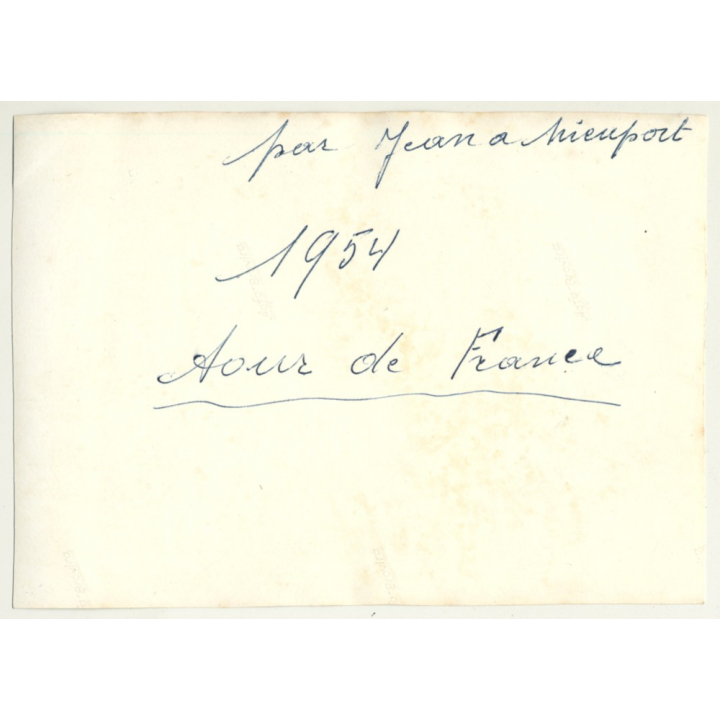 par Jean a Nieuport
1954
Tour de France